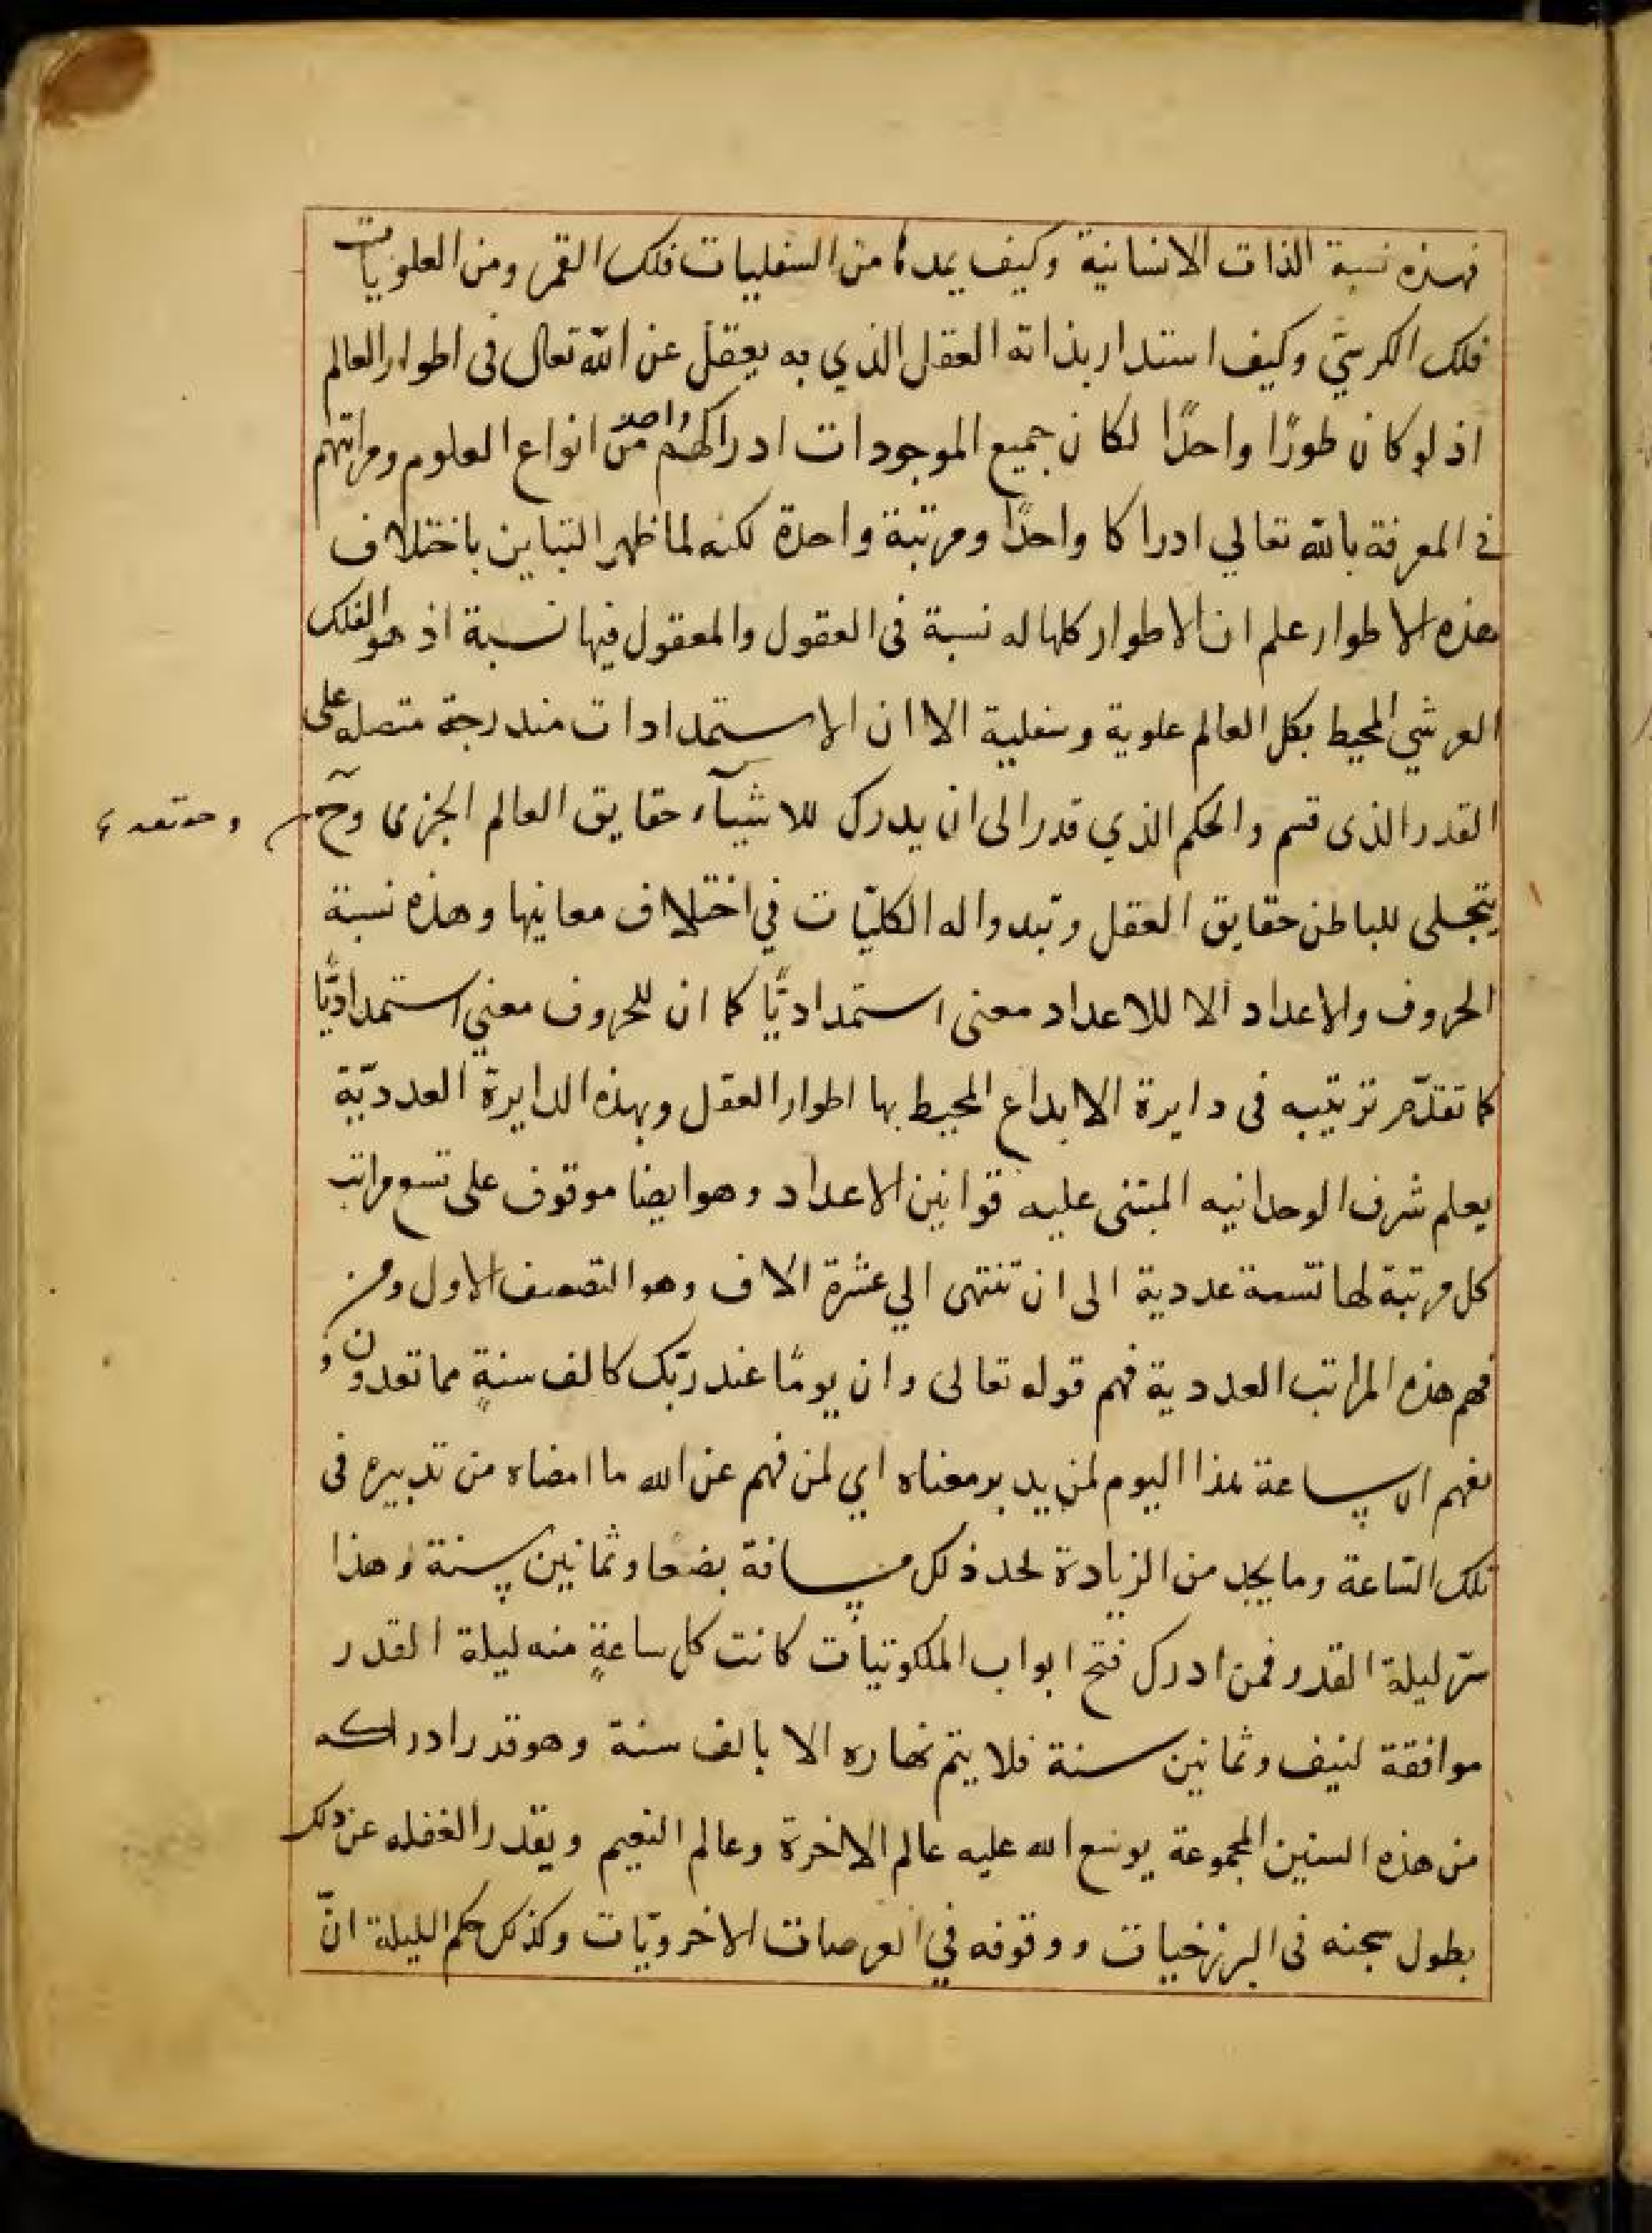 فهذه نسبة الذات الانسانية وكيف يمدها من السفليات فلك القمر ومن العلويات
فلك الكرسي وكيف استدار بذاته العقل الذي به يعقل عن الله تعالى فى اطوار العالم
اذ لو كان طورًا واحدًا لكان جميع الموجودات ادراكهم واحد من انواع العلوم ومراتبهم
في المعرفة بالله تعالي ادراكا واحدًا ومرتبة واحدة لكنه لما ظهر التباين باختلاف
هذه الاطوار علم ان الاطوار كلها له نسبة فى العقول والمعقول فيها نسبة اذ هو الفلك
العرشي المحيط بكل العالم علوية وسفلية الا ان الاستمدادات مندرجة متصله على
القدر الذى قسم والحكم الذي قدر الى ان يدرك للاشيآء حقايق العالم الجزى وحٓ
يتجلى للباطن حقايق العقل وتبدوا له الكليّات في اختلاف معانيها وهذه نسبة
الحروف والاعداد الا للاعداد معنى استمداديًّا كما ان للحروف معني استمداديًّا
كما تقدّم ترتيبه فى دايرة الابداع المحيط بها اطوار العقل وبهذه الدايرة العدديّة
يعلم شرف الوحدانيه المبتنى عليه قوانين الاعداد وهو ايضا موقوف على تسع مراتب
كل مرتبة لها تسمة عددية الى ان تنتهى الي عشرة الاف وهو التضعيف الاول ومن
فهم هذه المراتب العددية فهم قوله تعالى وان يومًا عند ربّك كالف سنةٍ مما تعدون و
نفهم ان ساعة هذا اليوم لمن يدبر معناه اي لمن فهم عن الله ما امضاه من تدبيره فى
تلك الساعة وما يجد من الزيادة لحد ذلك مسافة بضعا وثمانين سنة وهذا
سرّ ليلة القدر فمن ادرك فتح ابواب الملكوتيات كانت كل ساعةٍ منه ليلة القدر
موافقة لنيف وثمانين سنة فلا يتم نهاره الا بالف سنة وهو قدر ادراكه
من هذه السنين المجموعة يوسع الله عليه عالم الاخرة وعالم النعيم ويقدر الغفله عن ذلك
بطول سجنه فى البرزخيات ووقوفه في العرصات الاخرويّات وكذلك حكم الليلة انّ